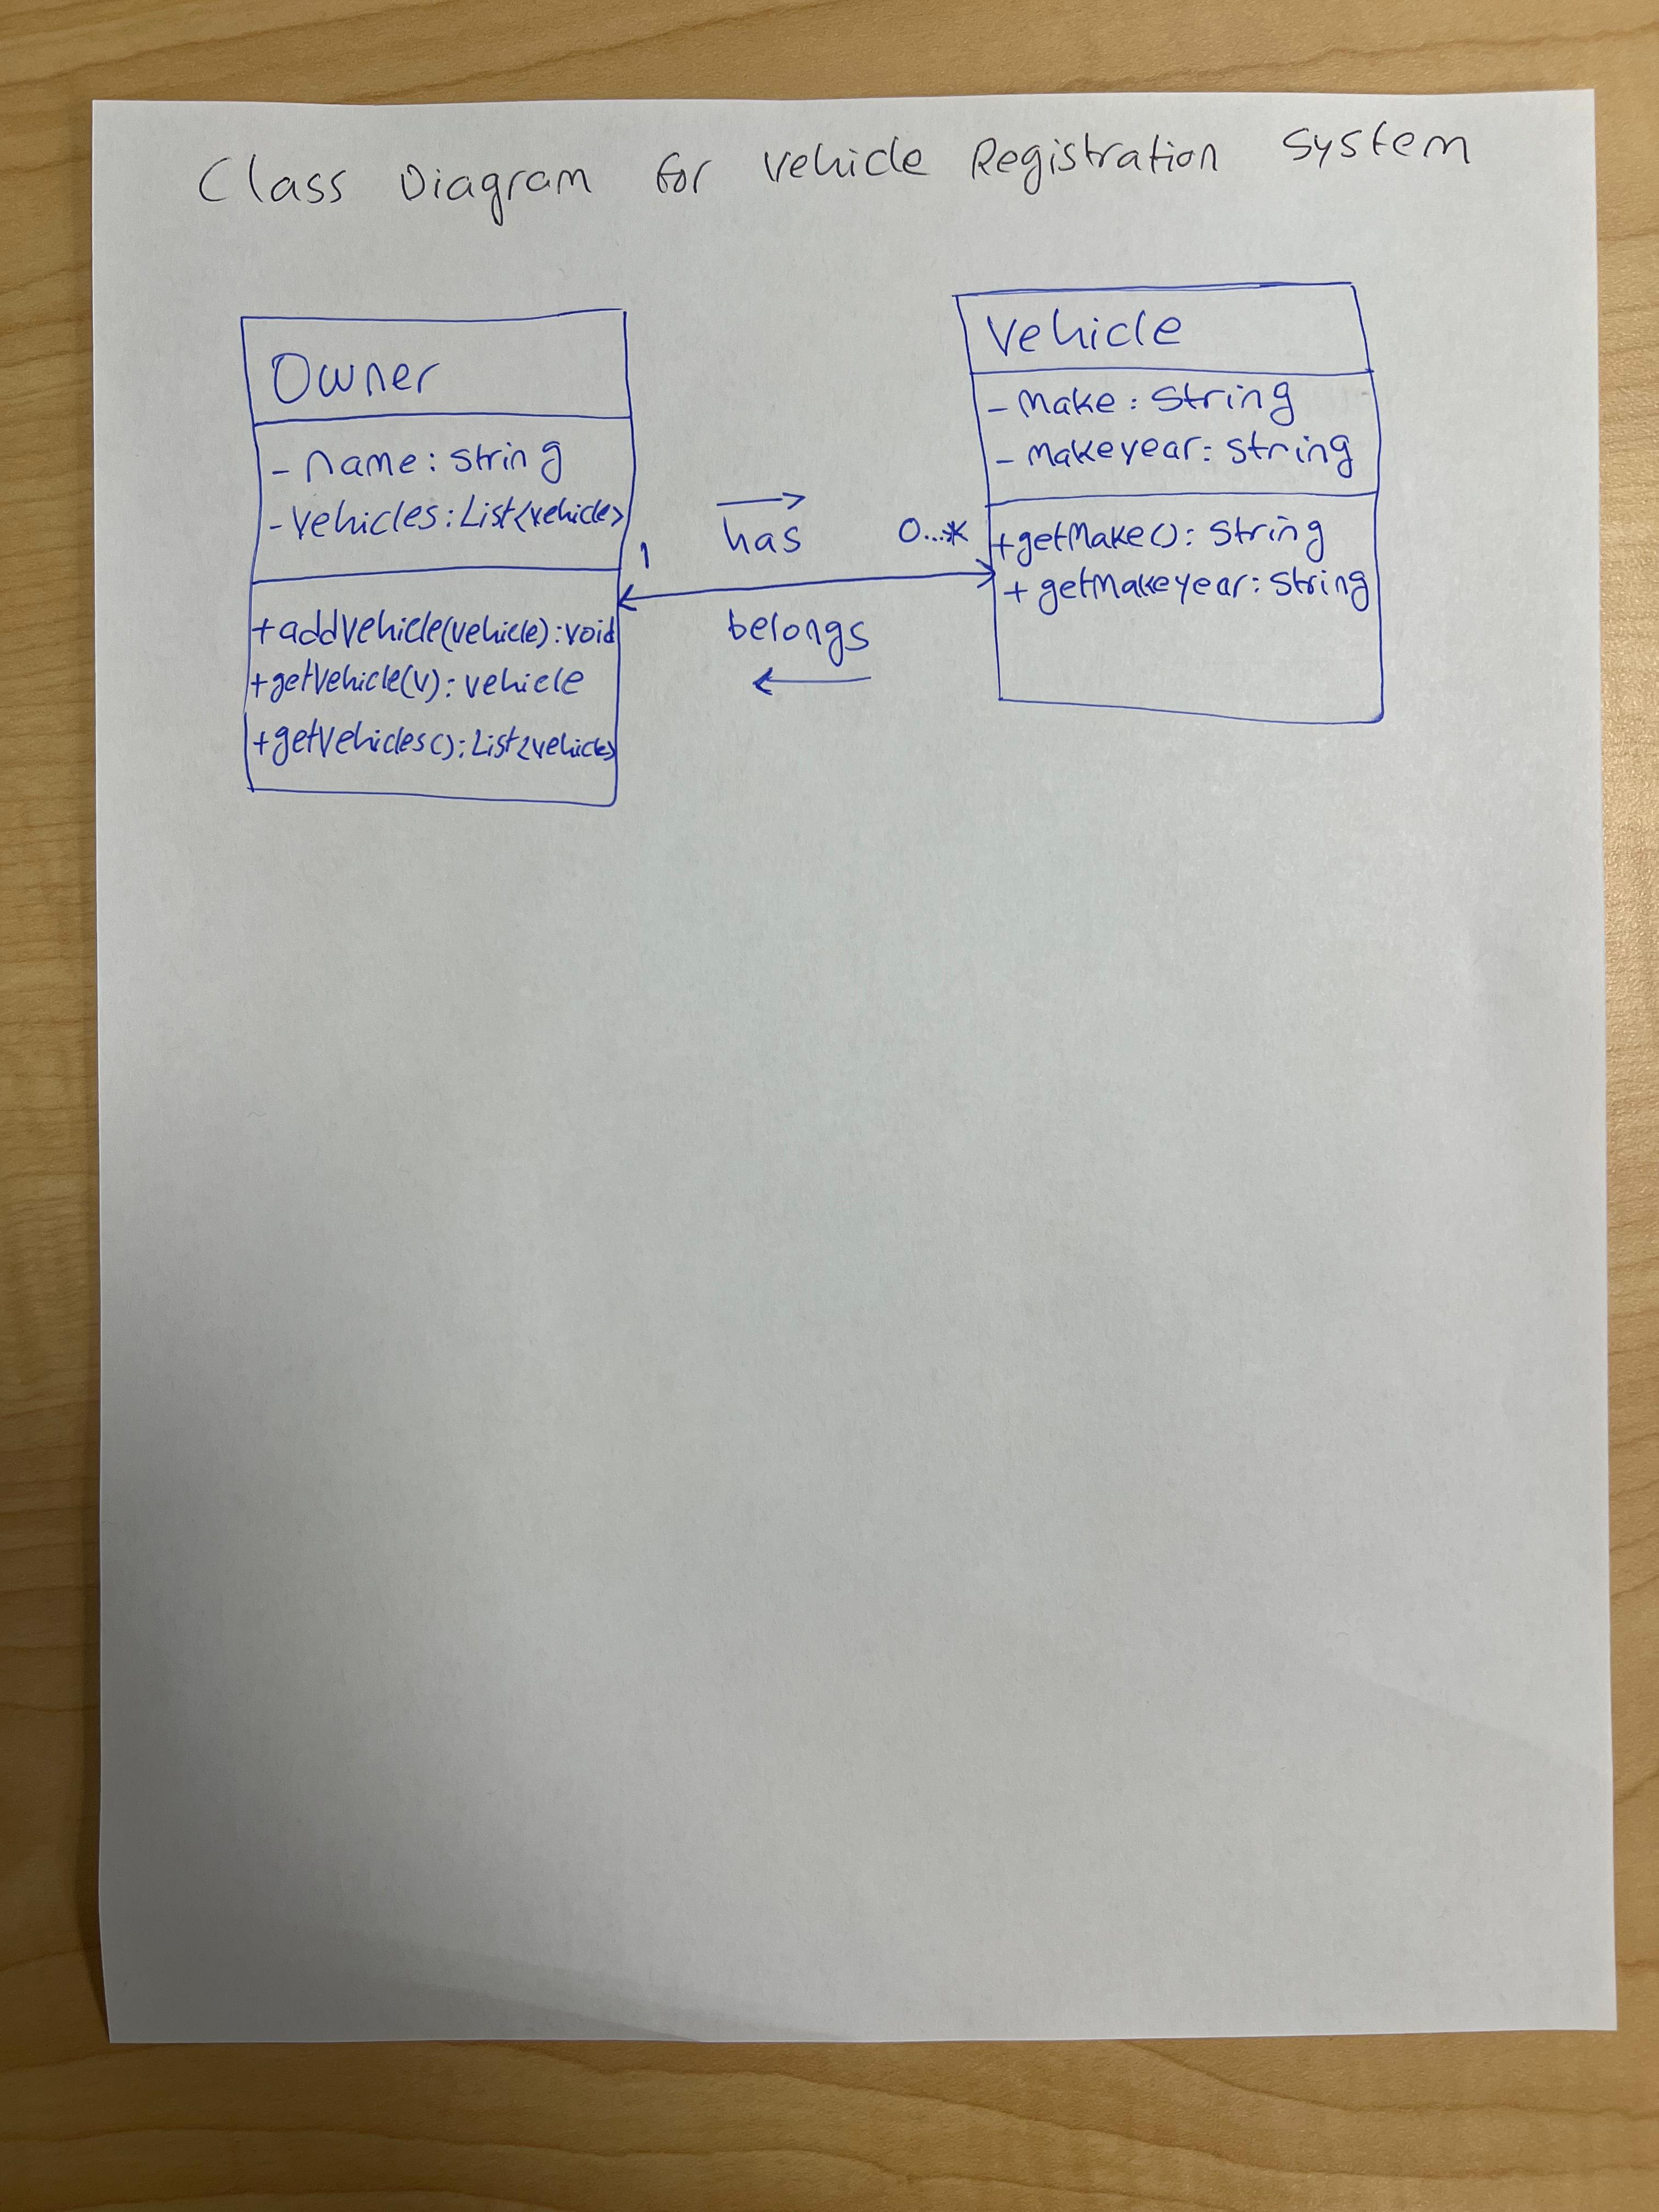 Class Diagram for Vehicle Registration System
Owner
- name: string
- vehicles: List<vehicle>
+ addVehicle(vehicle): void
+ getVehicle(v): vehicle
+ getVehicles(): List<vehicle>
1
has
0...*
belongs
Vehicle
- Make: String
- Makeyear: String
+ getMake(): String
+ getMakeyear: String